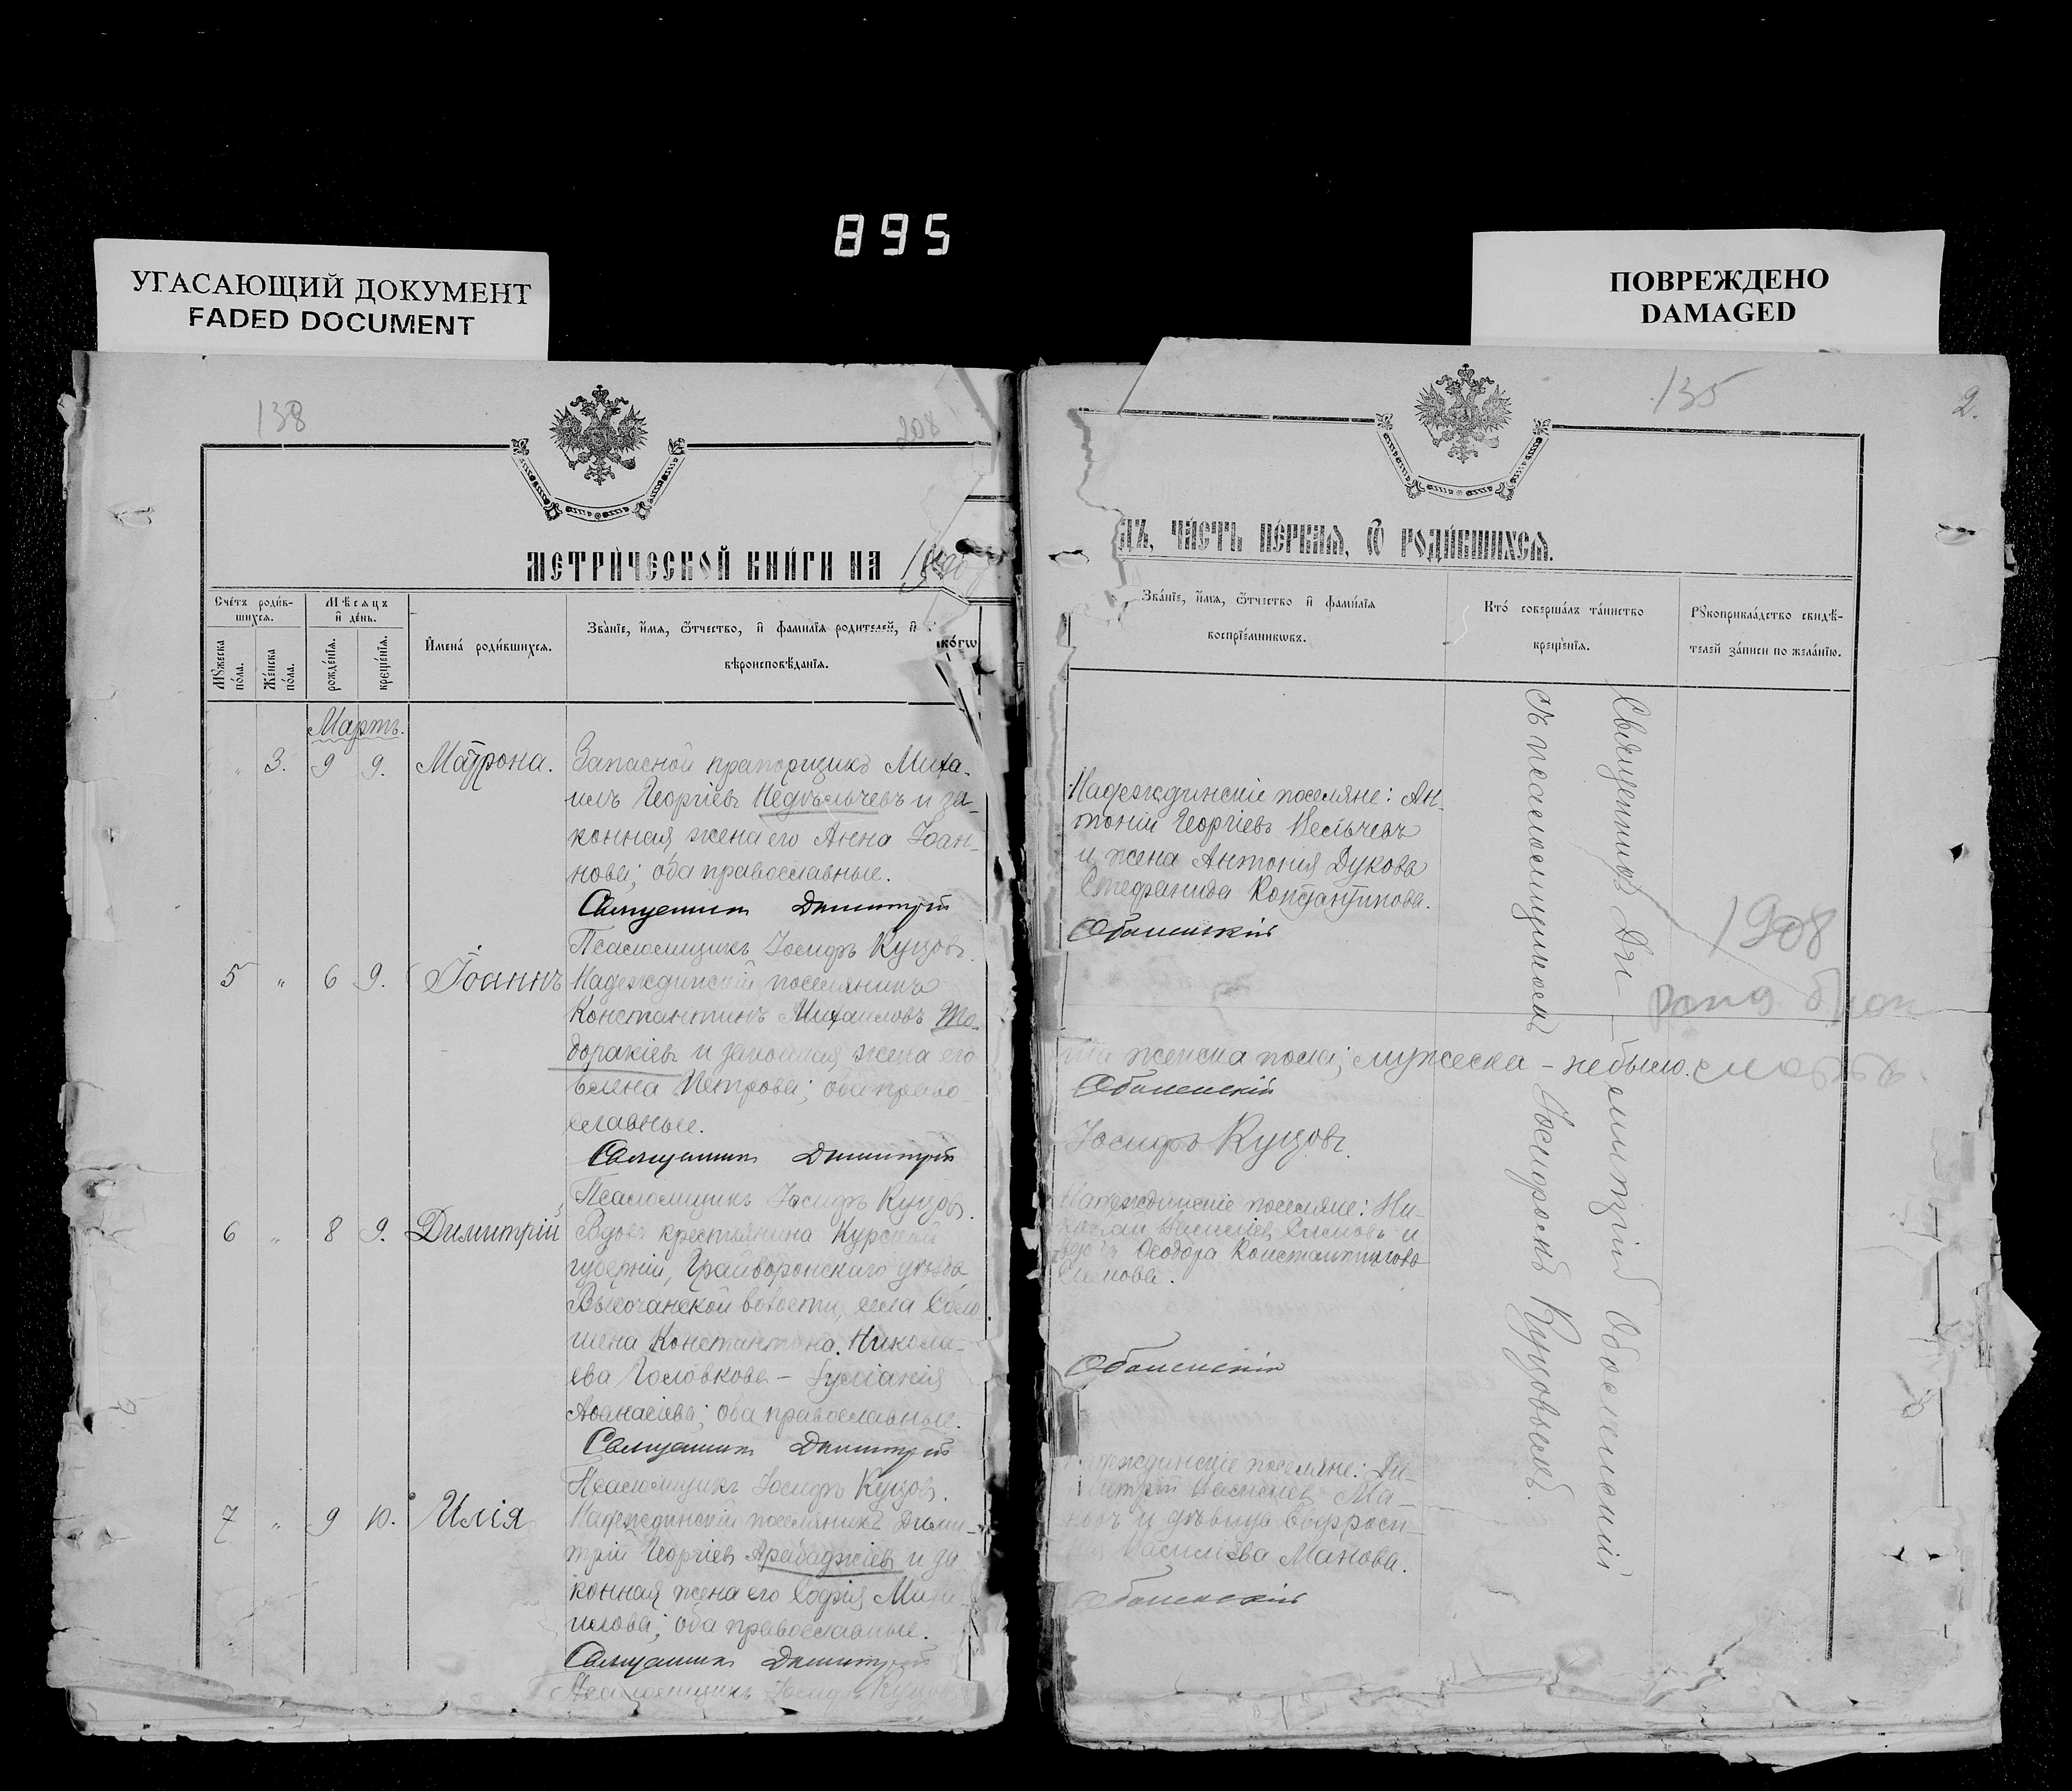 895
УГАСАЮЩИЙ ДОКУМЕНТ
FADED DOCUMENT
ПОВРЕЖДЕНО
DAMAGED
138
208
МЕТРИ́ЧЕСКОЙ КНИ́ГИ НА
Сче́тъ роди́в-
шихсѧ.
Мѣсѧцъ
и҆ де́нь.
Мꙋ́жеска
по́ла.
Же́нска
по́ла.
рожде́нїѧ.
креще́нїѧ.
И҆мена̀ роди́вшихсѧ.
Зва́нїе, и҆́мѧ, ѻ҆́тчество, и҆ фами́лїѧ роди́телей, и҆
ко́гѡ
вѣроисповѣ́данїѧ.
Мартъ.
" 3. 9 9. Матрона.
Запасной прапорщикъ Миха-
илъ Георгіевъ Недѣльчевъ и за-
конная жена его Анна Іоан-
нова; оба православные.
Священникъ Димитрій
Псаломщикъ Іосифъ Куцовъ.
5 " 6 9. Іоаннъ
Надеждинскій поселянинъ
Константинъ Михаиловъ То-
доракіевъ и законная жена его
Елена Петрова; оба право-
славные.
Священникъ Димитрій
Псаломщикъ Іосифъ Куцовъ.
6 " 8 9. Димитрій
Вдова крестьянина Курской
губерніи, Грайворонскаго уѣзда,
Высочанской волости, села
Константина Никола-
ева Головкова –
Аѳанасіева; оба православные.
Священникъ Димитрій
Псаломщикъ Іосифъ Куцовъ.
7 " 9 10. Илія
Надеждинскій поселянинъ Дими-
трій Георгіевъ Арабаджіевъ и за-
конная жена его Софія Миха-
илова; оба православные.
Священникъ Димитрій
Псаломщикъ Іосифъ Куцовъ
135
2.
ДЪ, ЧА́СТЬ ПЕ́РВАѦ, Ѡ҆ РОДИ́ВШИХСѦ.
Зва́нїе, и҆́мѧ, ѻ҆́тчество и҆ фами́лїѧ
воспрїе́мникѡвъ.
Кто̀ соверша́лъ та́инство
креще́нїѧ.
Рꙋкоприкла́дство свидѣ́-
телей за́писи по жела́нїю.
Надеждинскіе поселяне: Ан-
тоній Георгіевъ
и жена Антонія Дукова
Стефанида Константинова.
Оболенскій
женска пола; мужеска – не было.
Оболенскій
Іосифъ Куцовъ.
Надеждинскіе поселяне: Ни-
колай и
Ѳеодора Константинова
Оболенскій
Надеждинскіе поселяне: Ди-
митрій Василіевъ Ма-
новъ и дѣвица
Василіева Манова.
Оболенскій
Священникъ Димитрій Оболенскій
съ псаломщикомъ Іосифомъ Куцовымъ.
1908